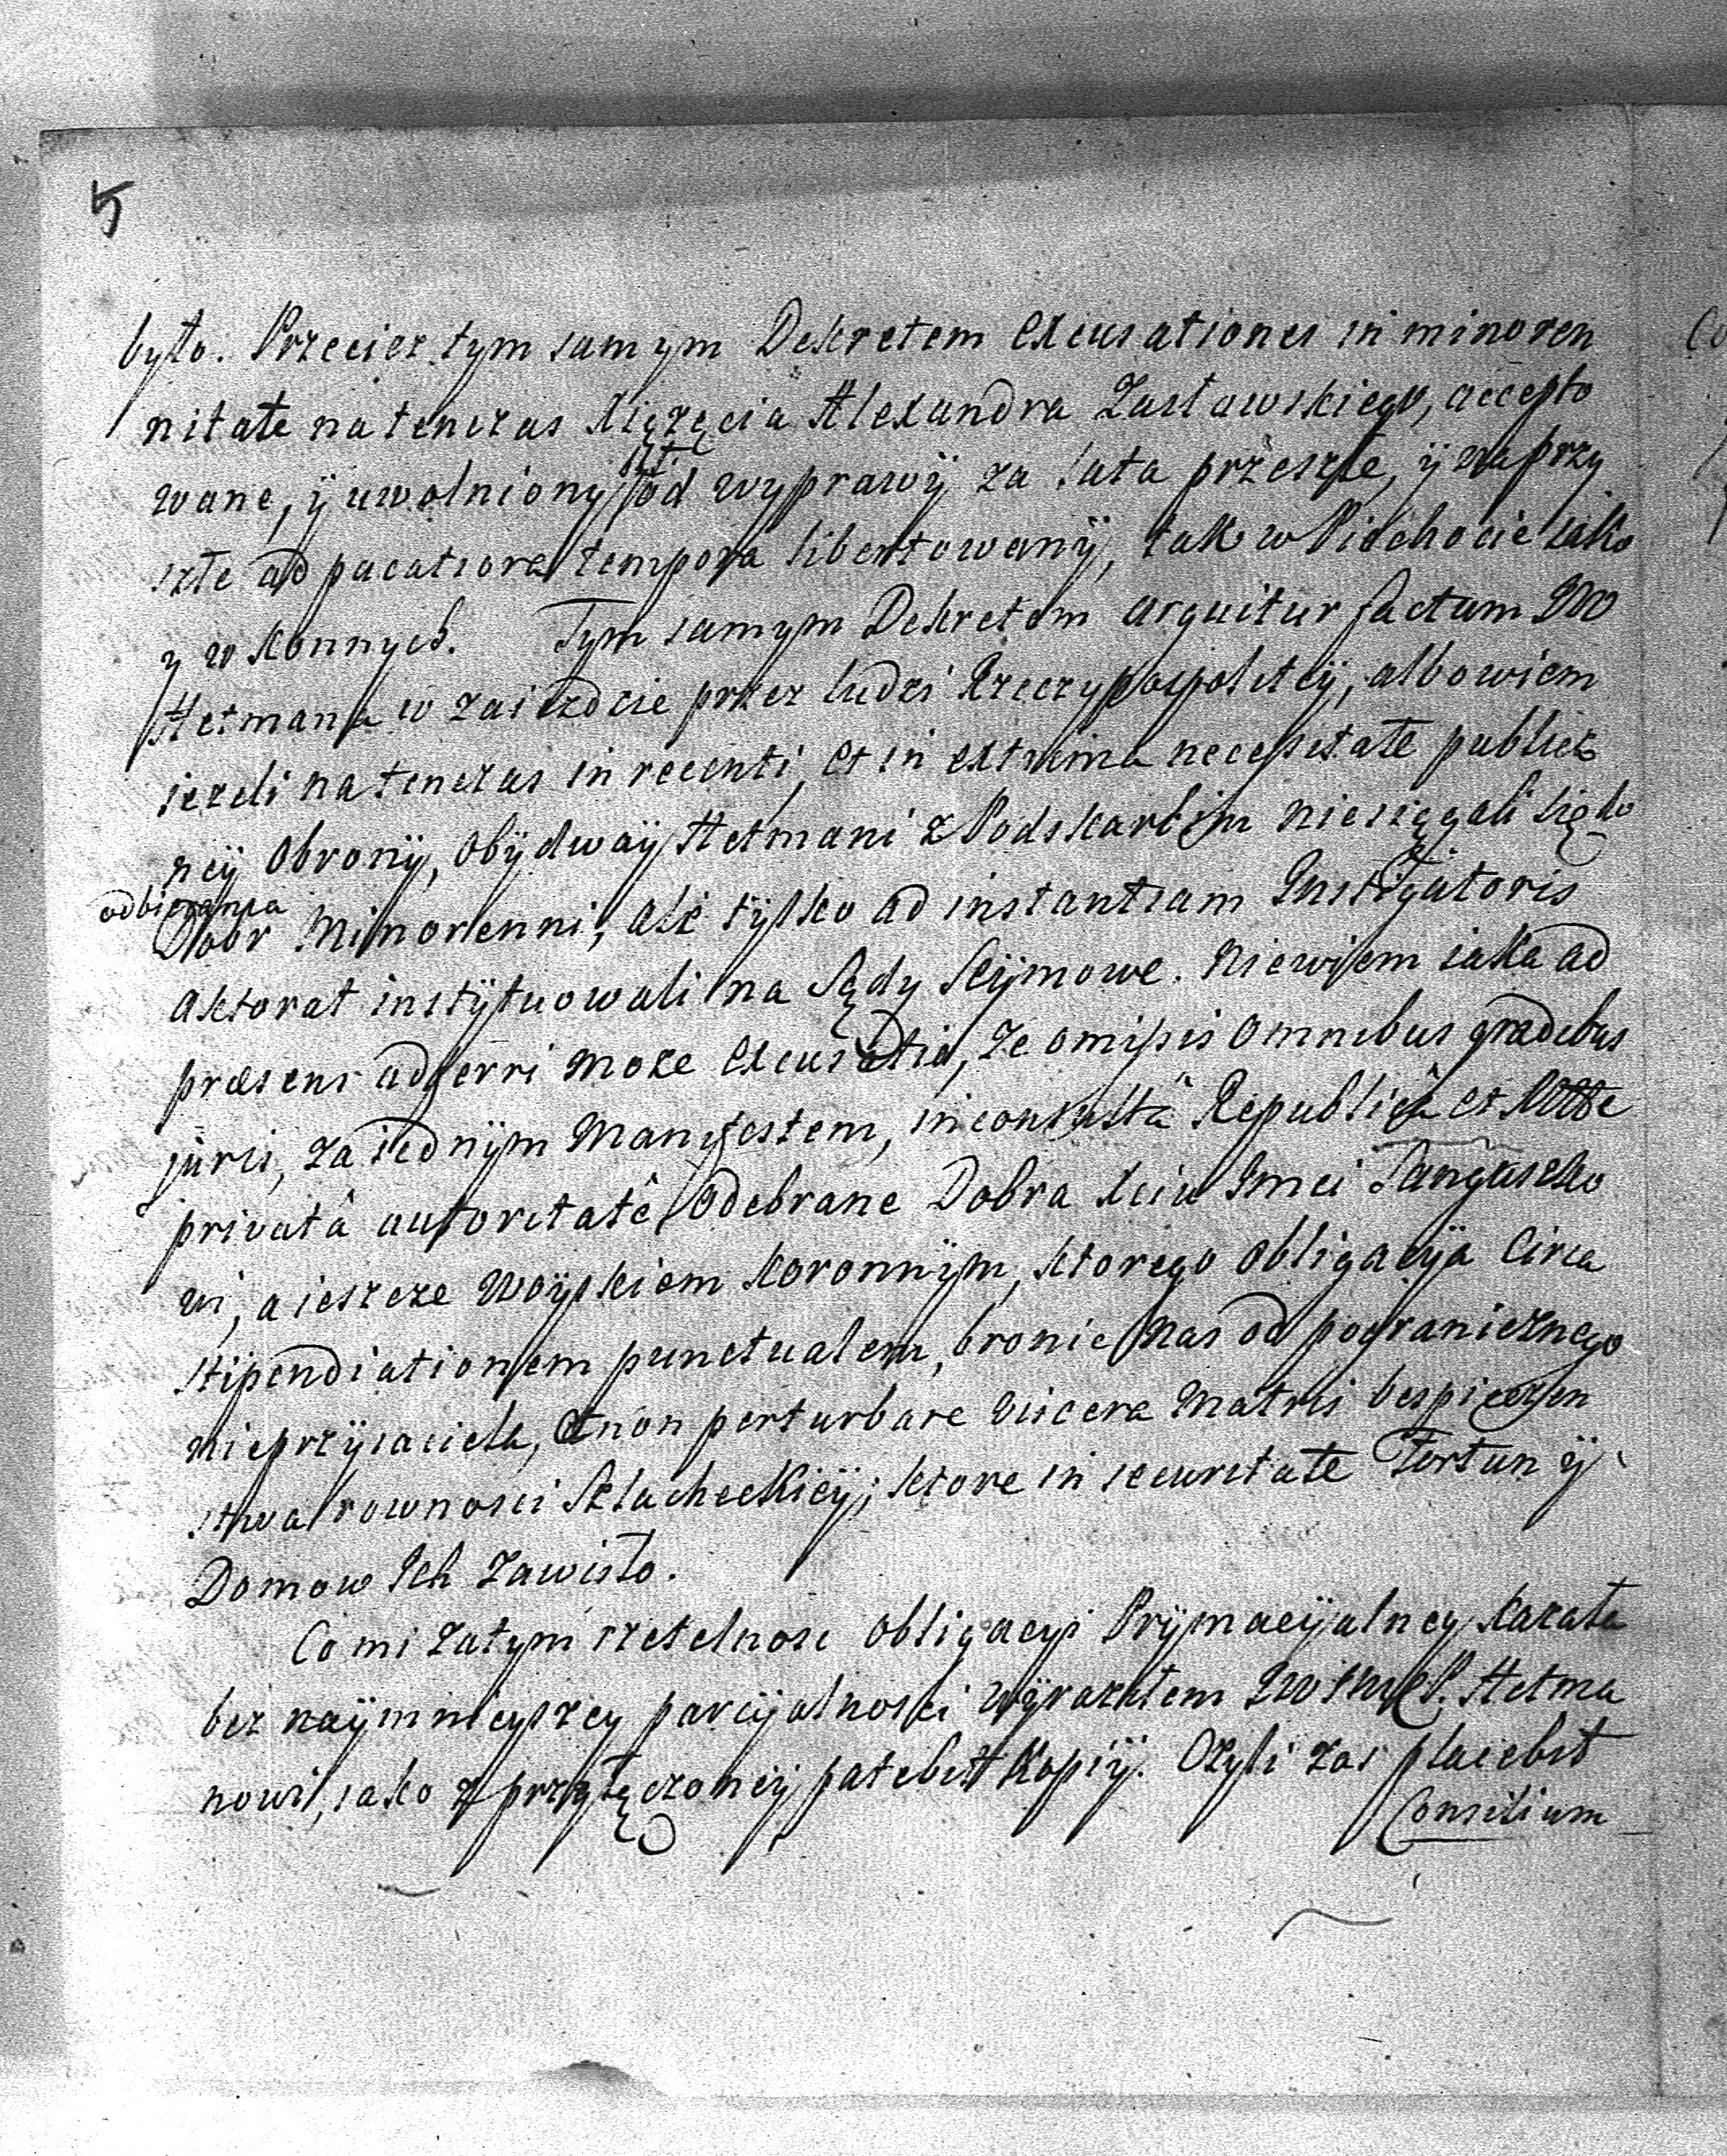 5
było. Przecier tym samym Dekretem excusationes in minoren
nitate natenczas Xiężęcia Alexandra Zasławskiego, accepto
wane, ÿ uwolniony iest od wyprawÿ za lata przeszłe, ÿ na przy
szłe ad pacatiora tempora libertowanÿ, tak w Piechocie iako
y w konnych. Tym samym Dekretem arguitur factum JW
Hetmana w zaiezdzie przez ludzi Rzeczypospolitey, albowiem
iezeli natenczas in recenti, et in extrema necessitate publicz
neÿ Obronÿ, Obÿdwaÿ Hetmani z Podskarbim niesięgali się do
odbierania
Dobr Minorenni, ale tÿlko ad instantiam Instigatoris
Aktorat instÿtuowali na Sądy Seÿmowe. Niewiem iaka ad
præsens adferri moze excusatio, ze omissis omnibus gradibus
juris, za iednÿm Manifestem, inconsultâ Republicâ et
privatâ autoritatê odebrane Dobra Xciu Jmci Sanguszko
wi, a ieszcze woÿskiem koronnÿm, ktorego obligacÿa circa
stipendiationem punctualem, bronic nas od pogranicznego
nieprzÿiaciela, et non perturbare viscera Matris bespieczen
stwa rownosci Szlacheckieÿ; ktore in securitate Fortun ÿ
Domow Ich zawisło.
Co mi zatym rzetelnosc obligacyi Prÿmacÿalney kazała
bez naÿmnieyszey parcÿalnosci wÿraziłem JW Hetma
nowi, iako z przyłączoneÿ patebit Kopiÿ. Czyli zas placebit
Consilium